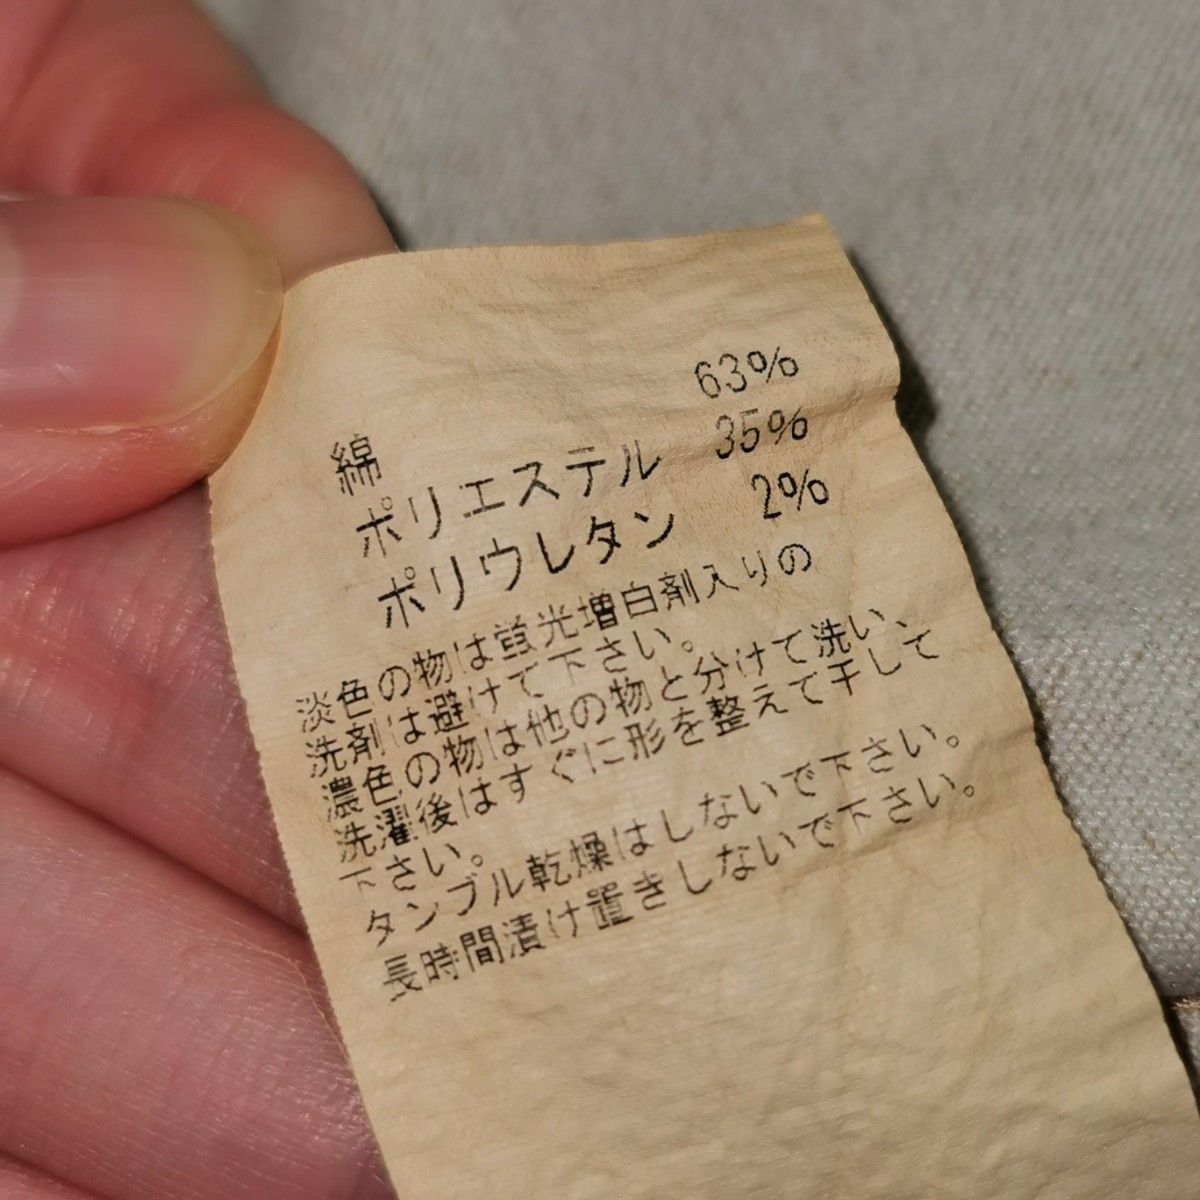 綿 63%
ポリエステル 35%
ポリウレタン 2%
淡色の物は蛍光増白剤入りの
洗剤は避けて下さい。
濃色の物は他の物と分けて洗い、
洗濯後はすぐに形を整えて干して
下さい。
タンブル乾燥はしないで下さい。
長時間漬け置きしないで下さい。